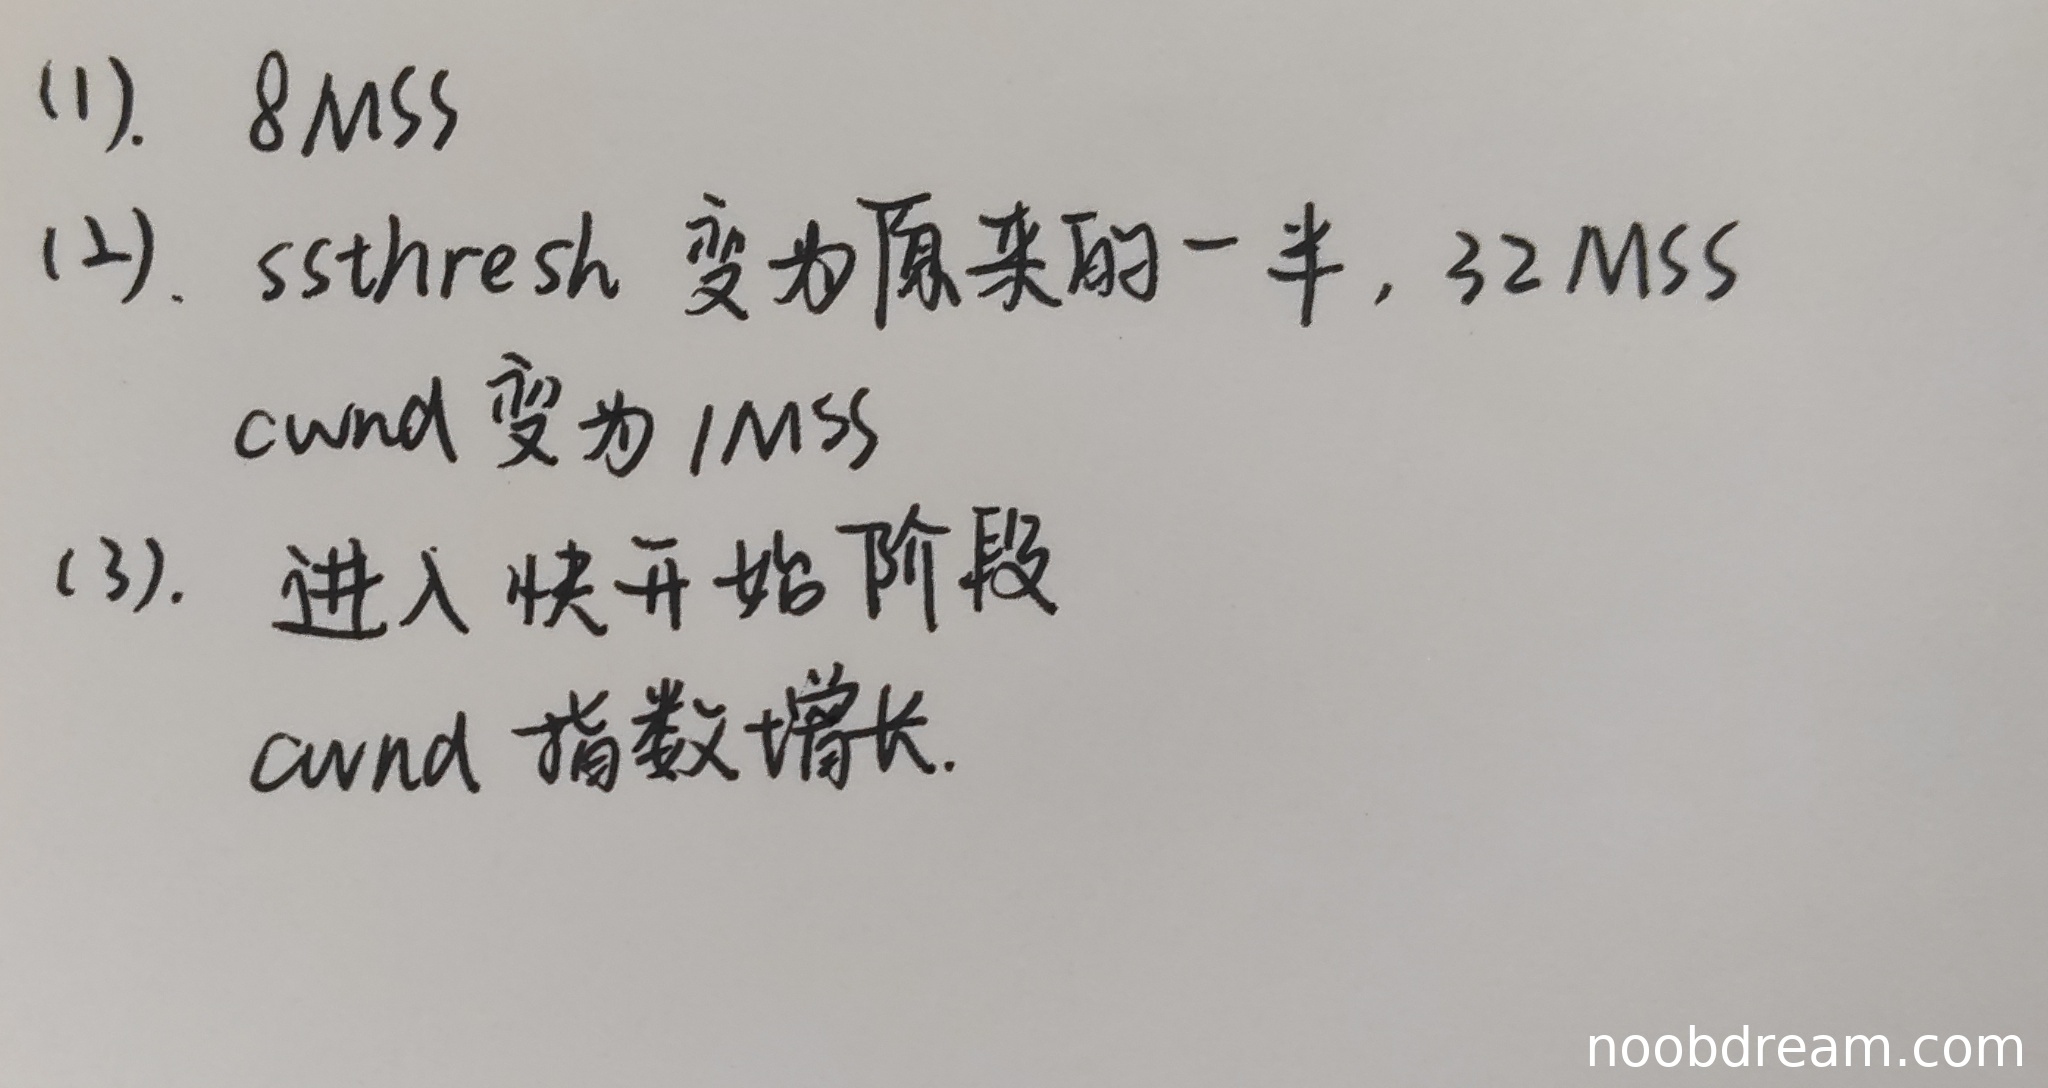 (1). 8MSS
(2). ssthresh 变为原来的一半, 32MSS
cwnd 变为 1MSS
(3). 进入快开始阶段
cwnd 指数增长.
noobdream.com